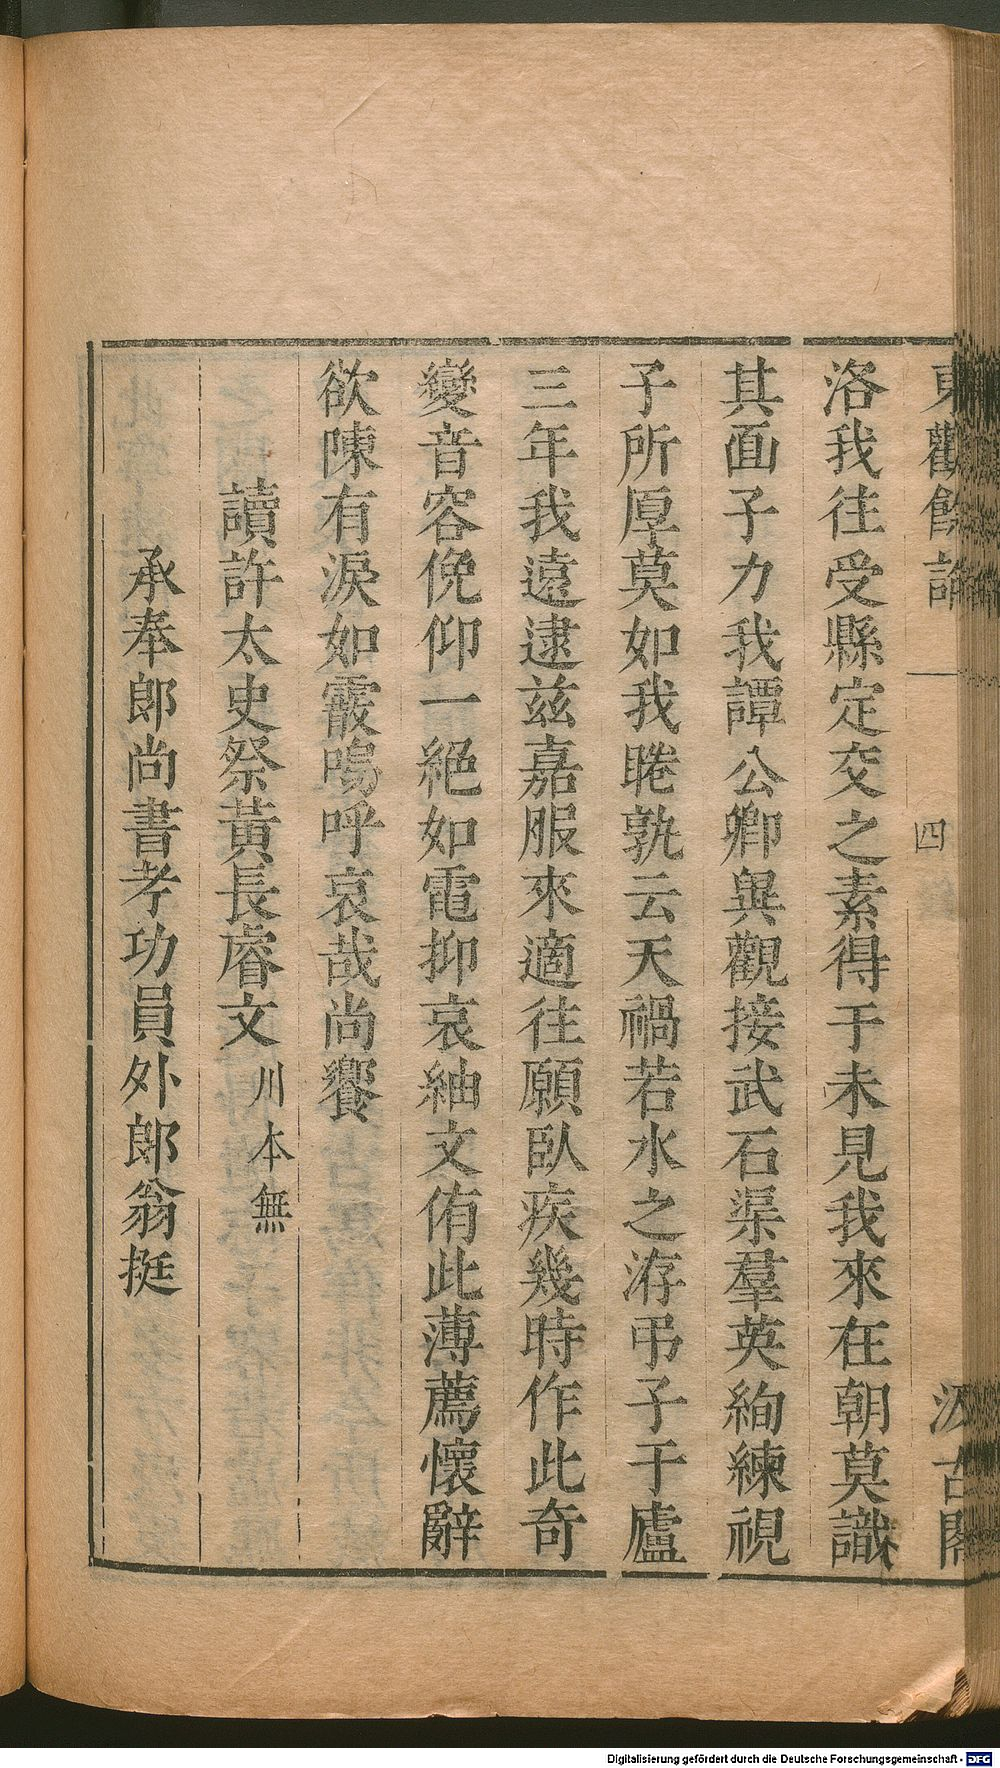 東觀餘論
四
汲古閣
洛我往受縣定交之素得于未見我來在朝莫識
其面子力我譚公卿與觀接武石渠羣英絢練視
子所厚莫如我睠孰云天禍若水之洊弔子于廬
三年我遠逮兹嘉服來適往願臥疾幾時作此奇
變音容俛仰一絕如電抑哀紬文侑此薄薦懷辭
欲陳有淚如霰嗚呼哀哉尚饗
讀許太史祭黃長睿文 川本無
承奉郎尚書考功員外郎翁挺
Digitalisierung gefördert durch die Deutsche Forschungsgemeinschaft - DFG